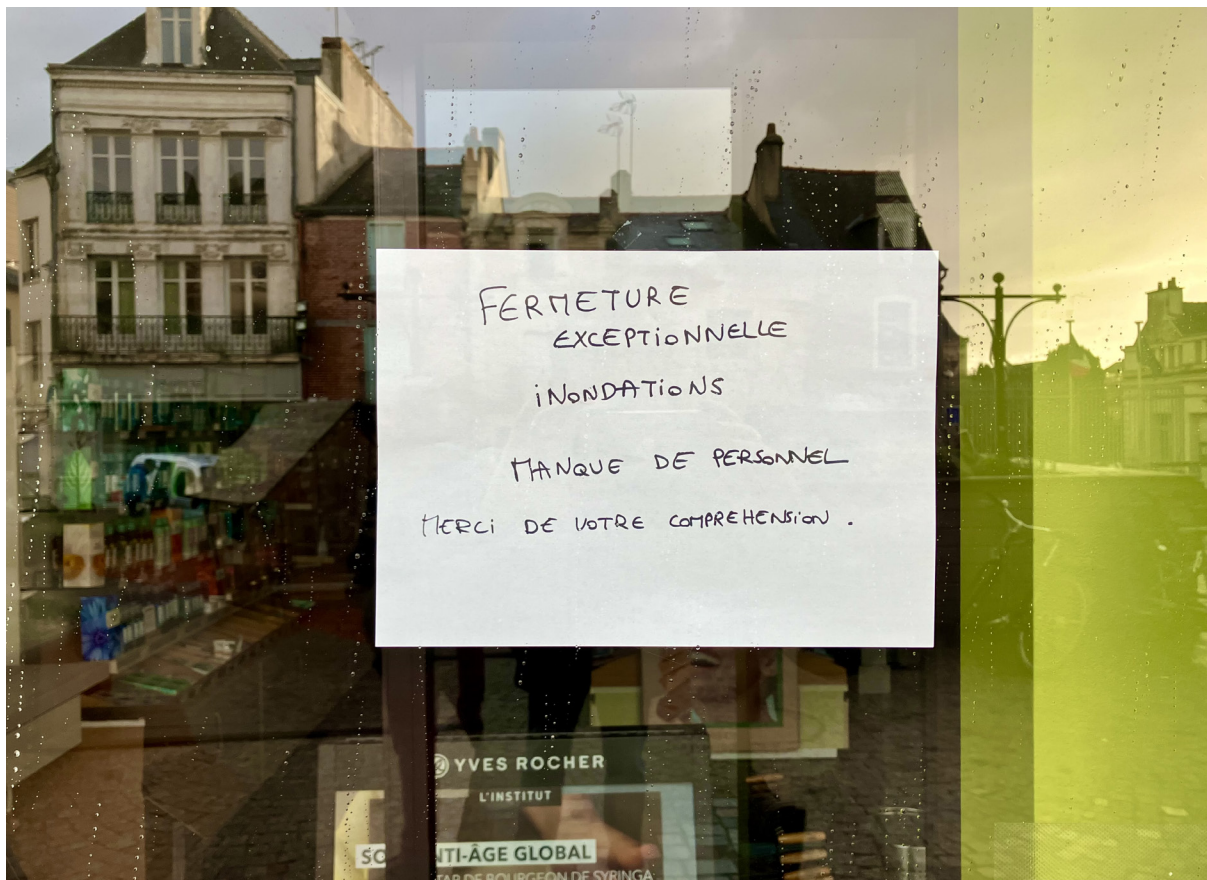 FERMETURE
EXCEPTIONNELLE
iNONDATiONS
MANQUE DE PERSONNEL
MERCi DE VOTRE COMPREHENSiON .
YVES ROCHER
L'INSTITUT
NTI-ÂGE GLOBAL
DE BOURGEON DE SYRINGA